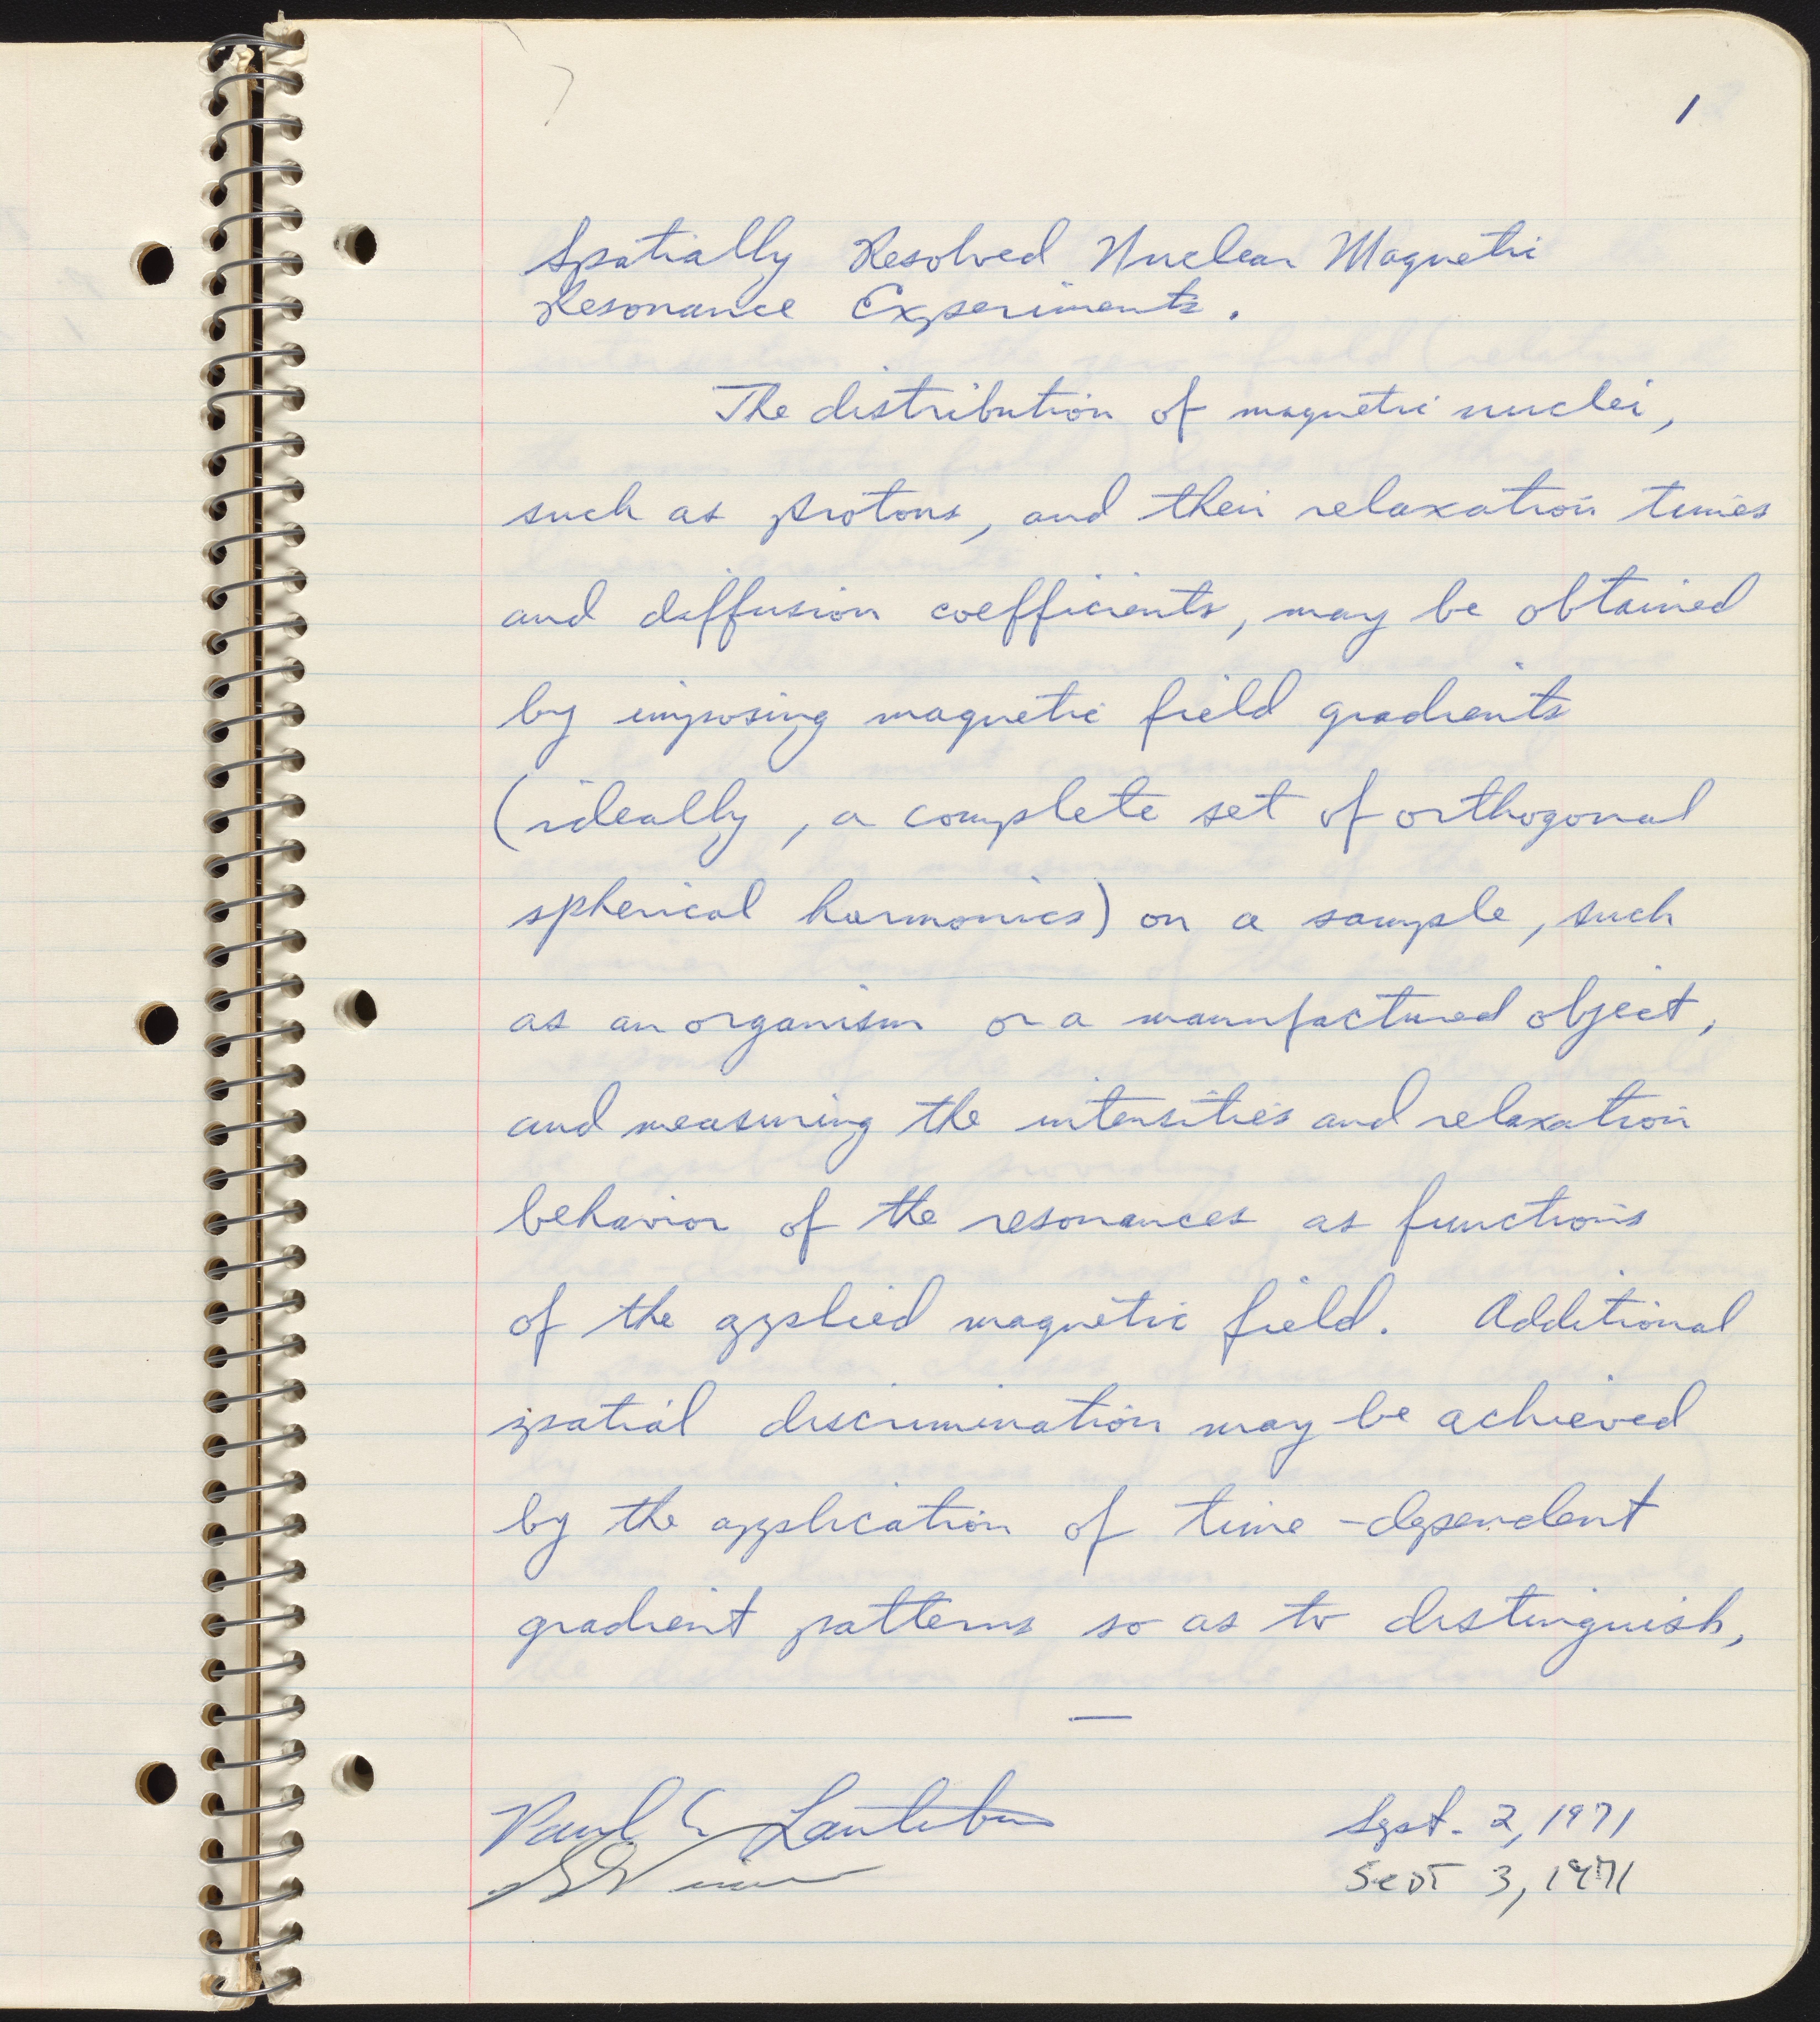 1
Spatially Resolved Nuclear Magnetic
Resonance Experiments.
The distribution of magnetic nuclei,
such as protons, and their relaxation times
and diffusion coefficients, may be obtained
by imposing magnetic field gradients
(ideally, a complete set of orthogonal
spherical harmonics) on a sample, such
as an organism or a manufactured object,
and measuring the intensities and relaxation
behavior of the resonances as functions
of the applied magnetic field. Additional
spatial discrimination may be achieved
by the application of time-dependent
gradient patterns so as to distinguish,
—
Paul C. Lauterbur Sept. 2, 1971
Sept 3, 1971